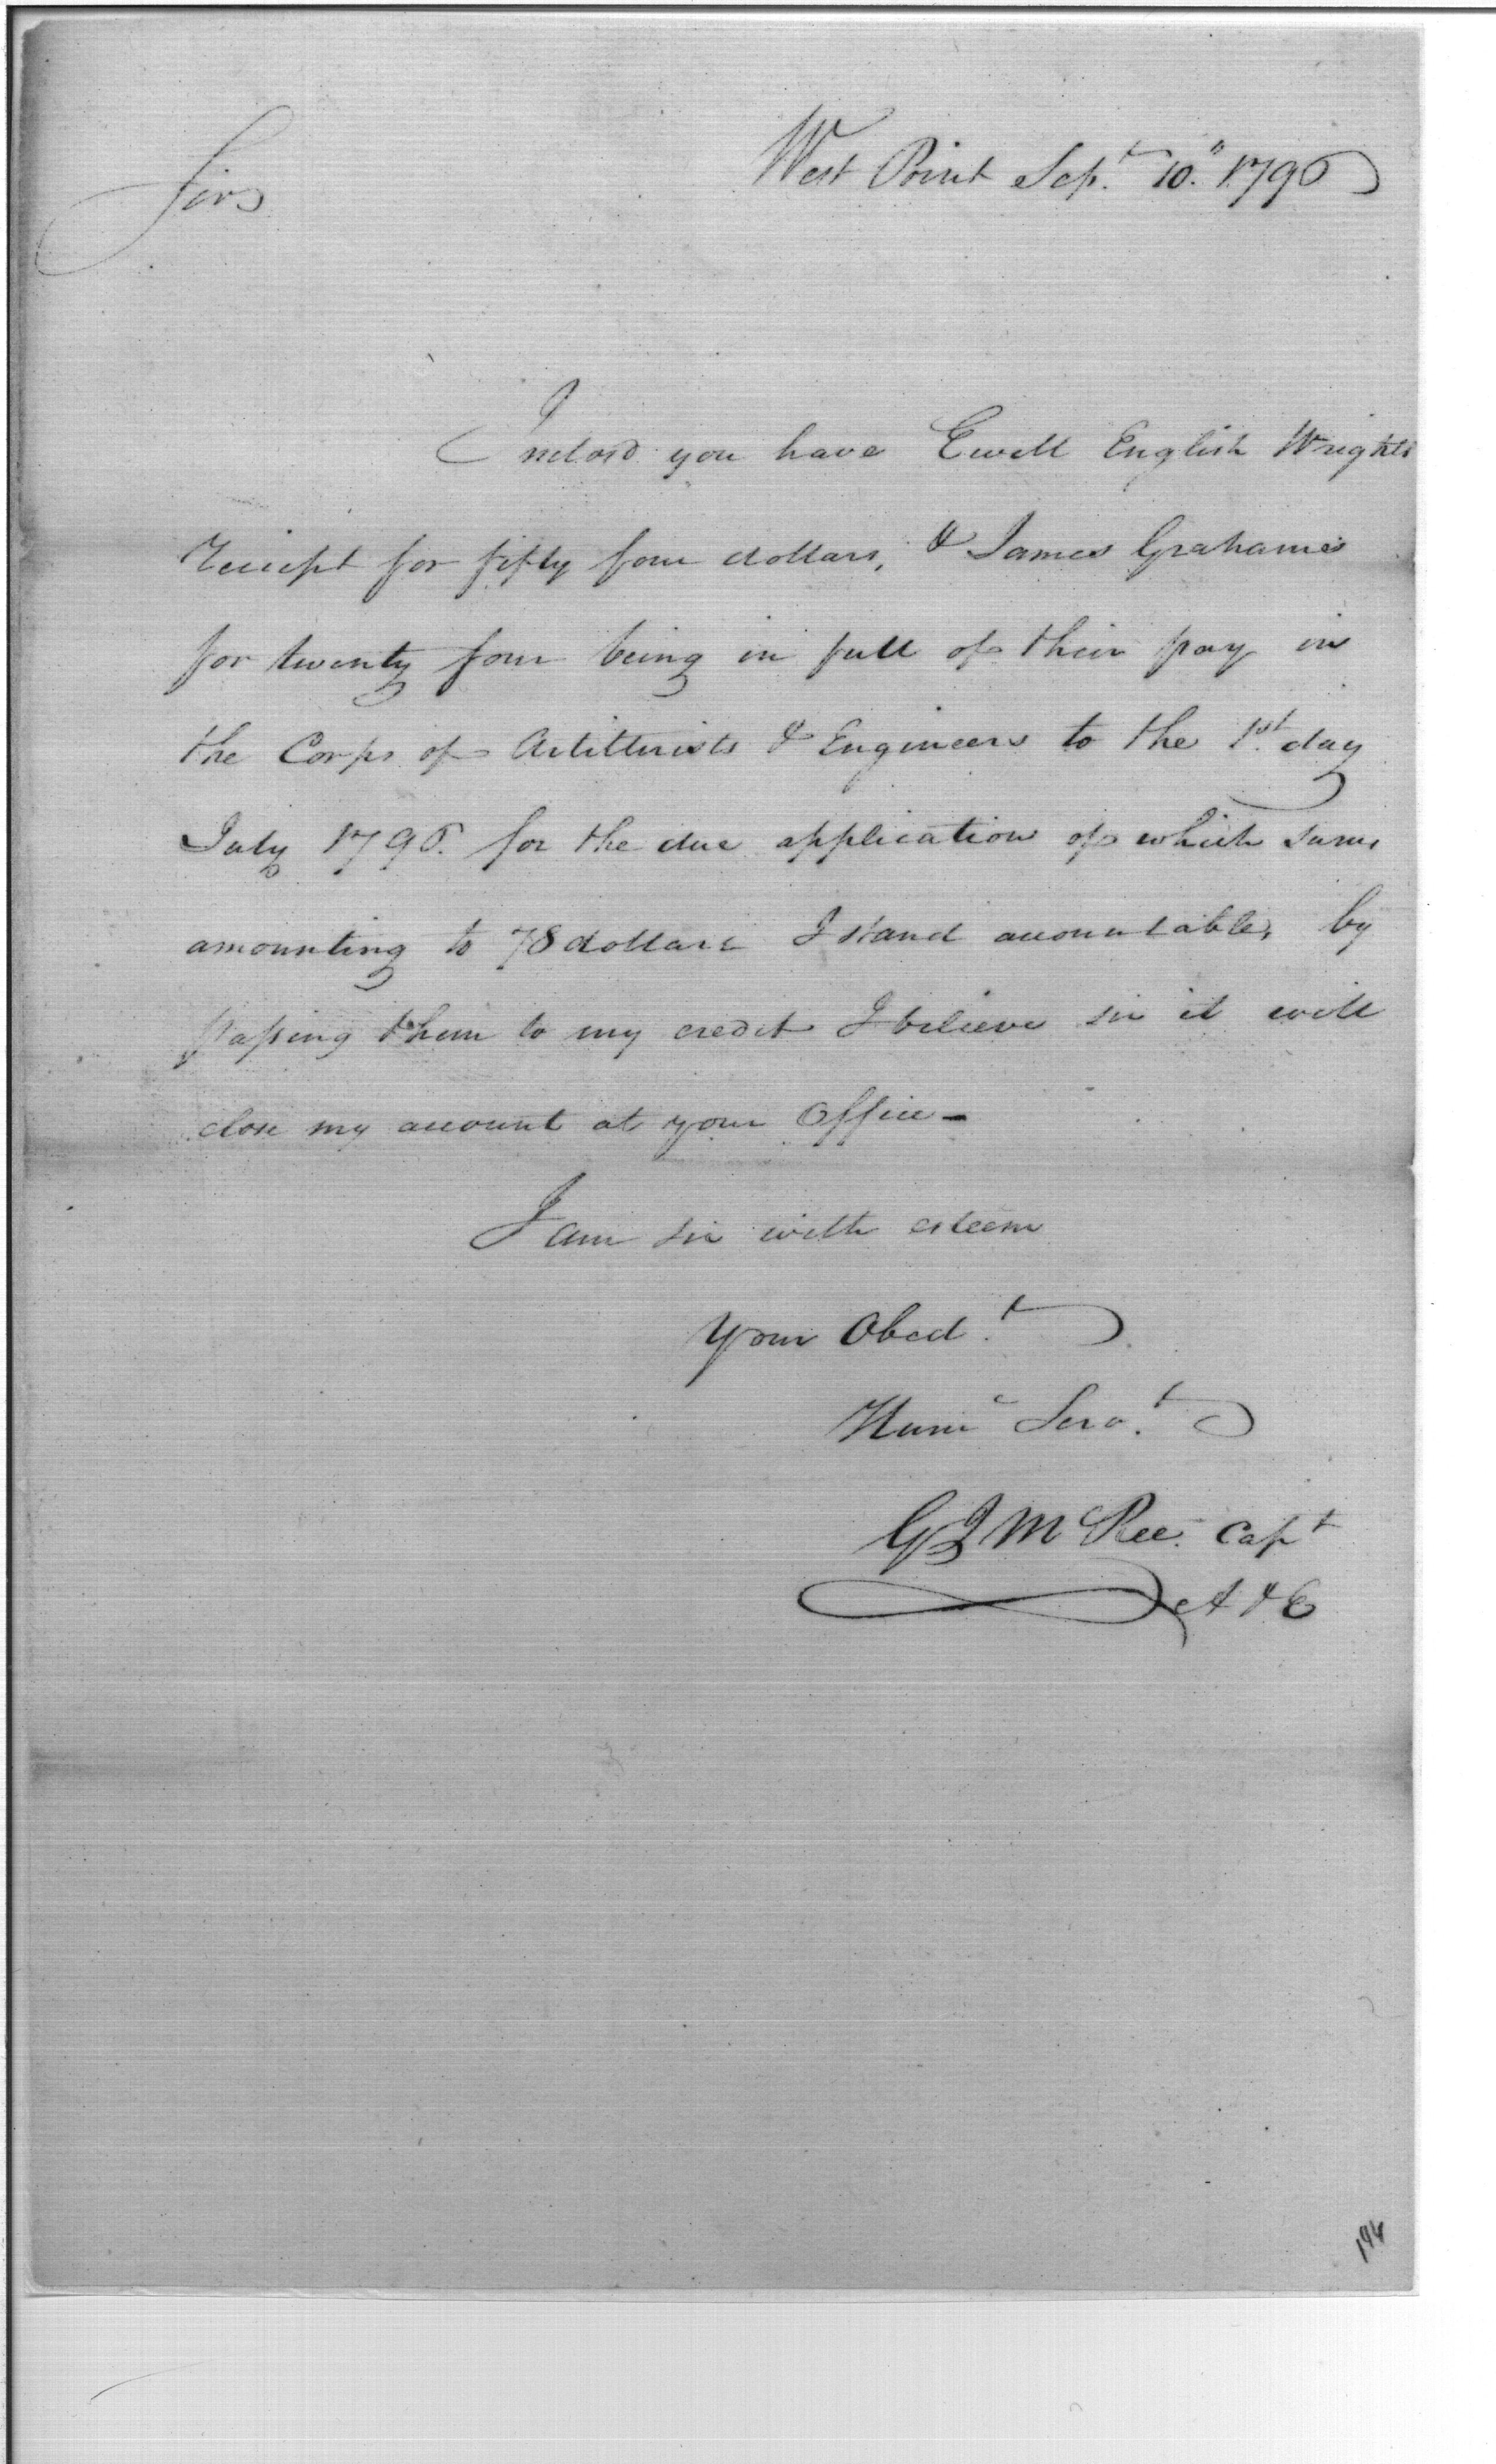 West Point Sept. 10th 1796
Sir
Inclosd you have Ewell English Wrights
receipt for fifty four dollars, & James Grahames
for twenty four being in full of their pay in
the Corps of Artillerists & Engineers to the 1st day
July 1796. for the due application of which sums
amounting to 78 dollars I stand accountable, by
passing them to my credit I believe sir it will
close my account at your Office —
I am sir with esteem
Your Obedt.
Hume Servt.
G J McRee. Capt
A & E